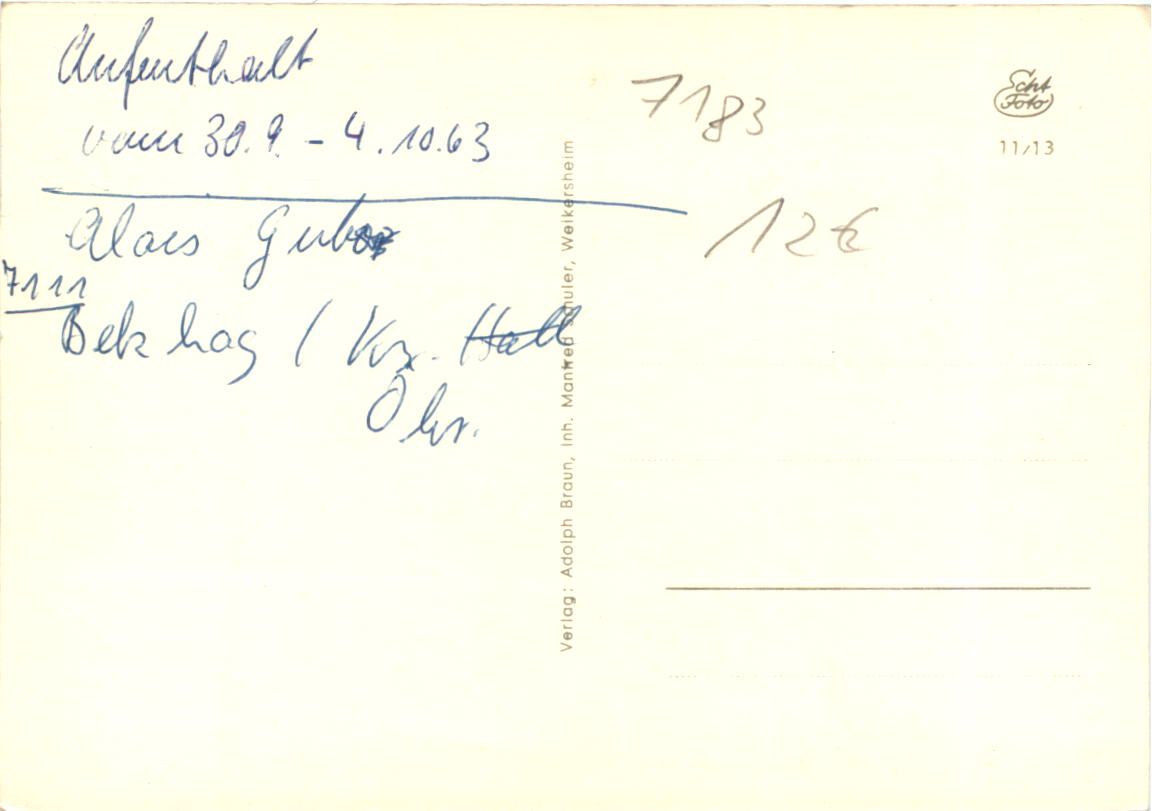 Aufenthalt
vom 30.9. - 4.10.63
Alois
7111
Belzhag / Krs. Hall
Öhr.
Verlag: Adolph Braun, Inh. Manfred Schuler, Weikersheim
7183
Echt
Foto
11/13
12 €